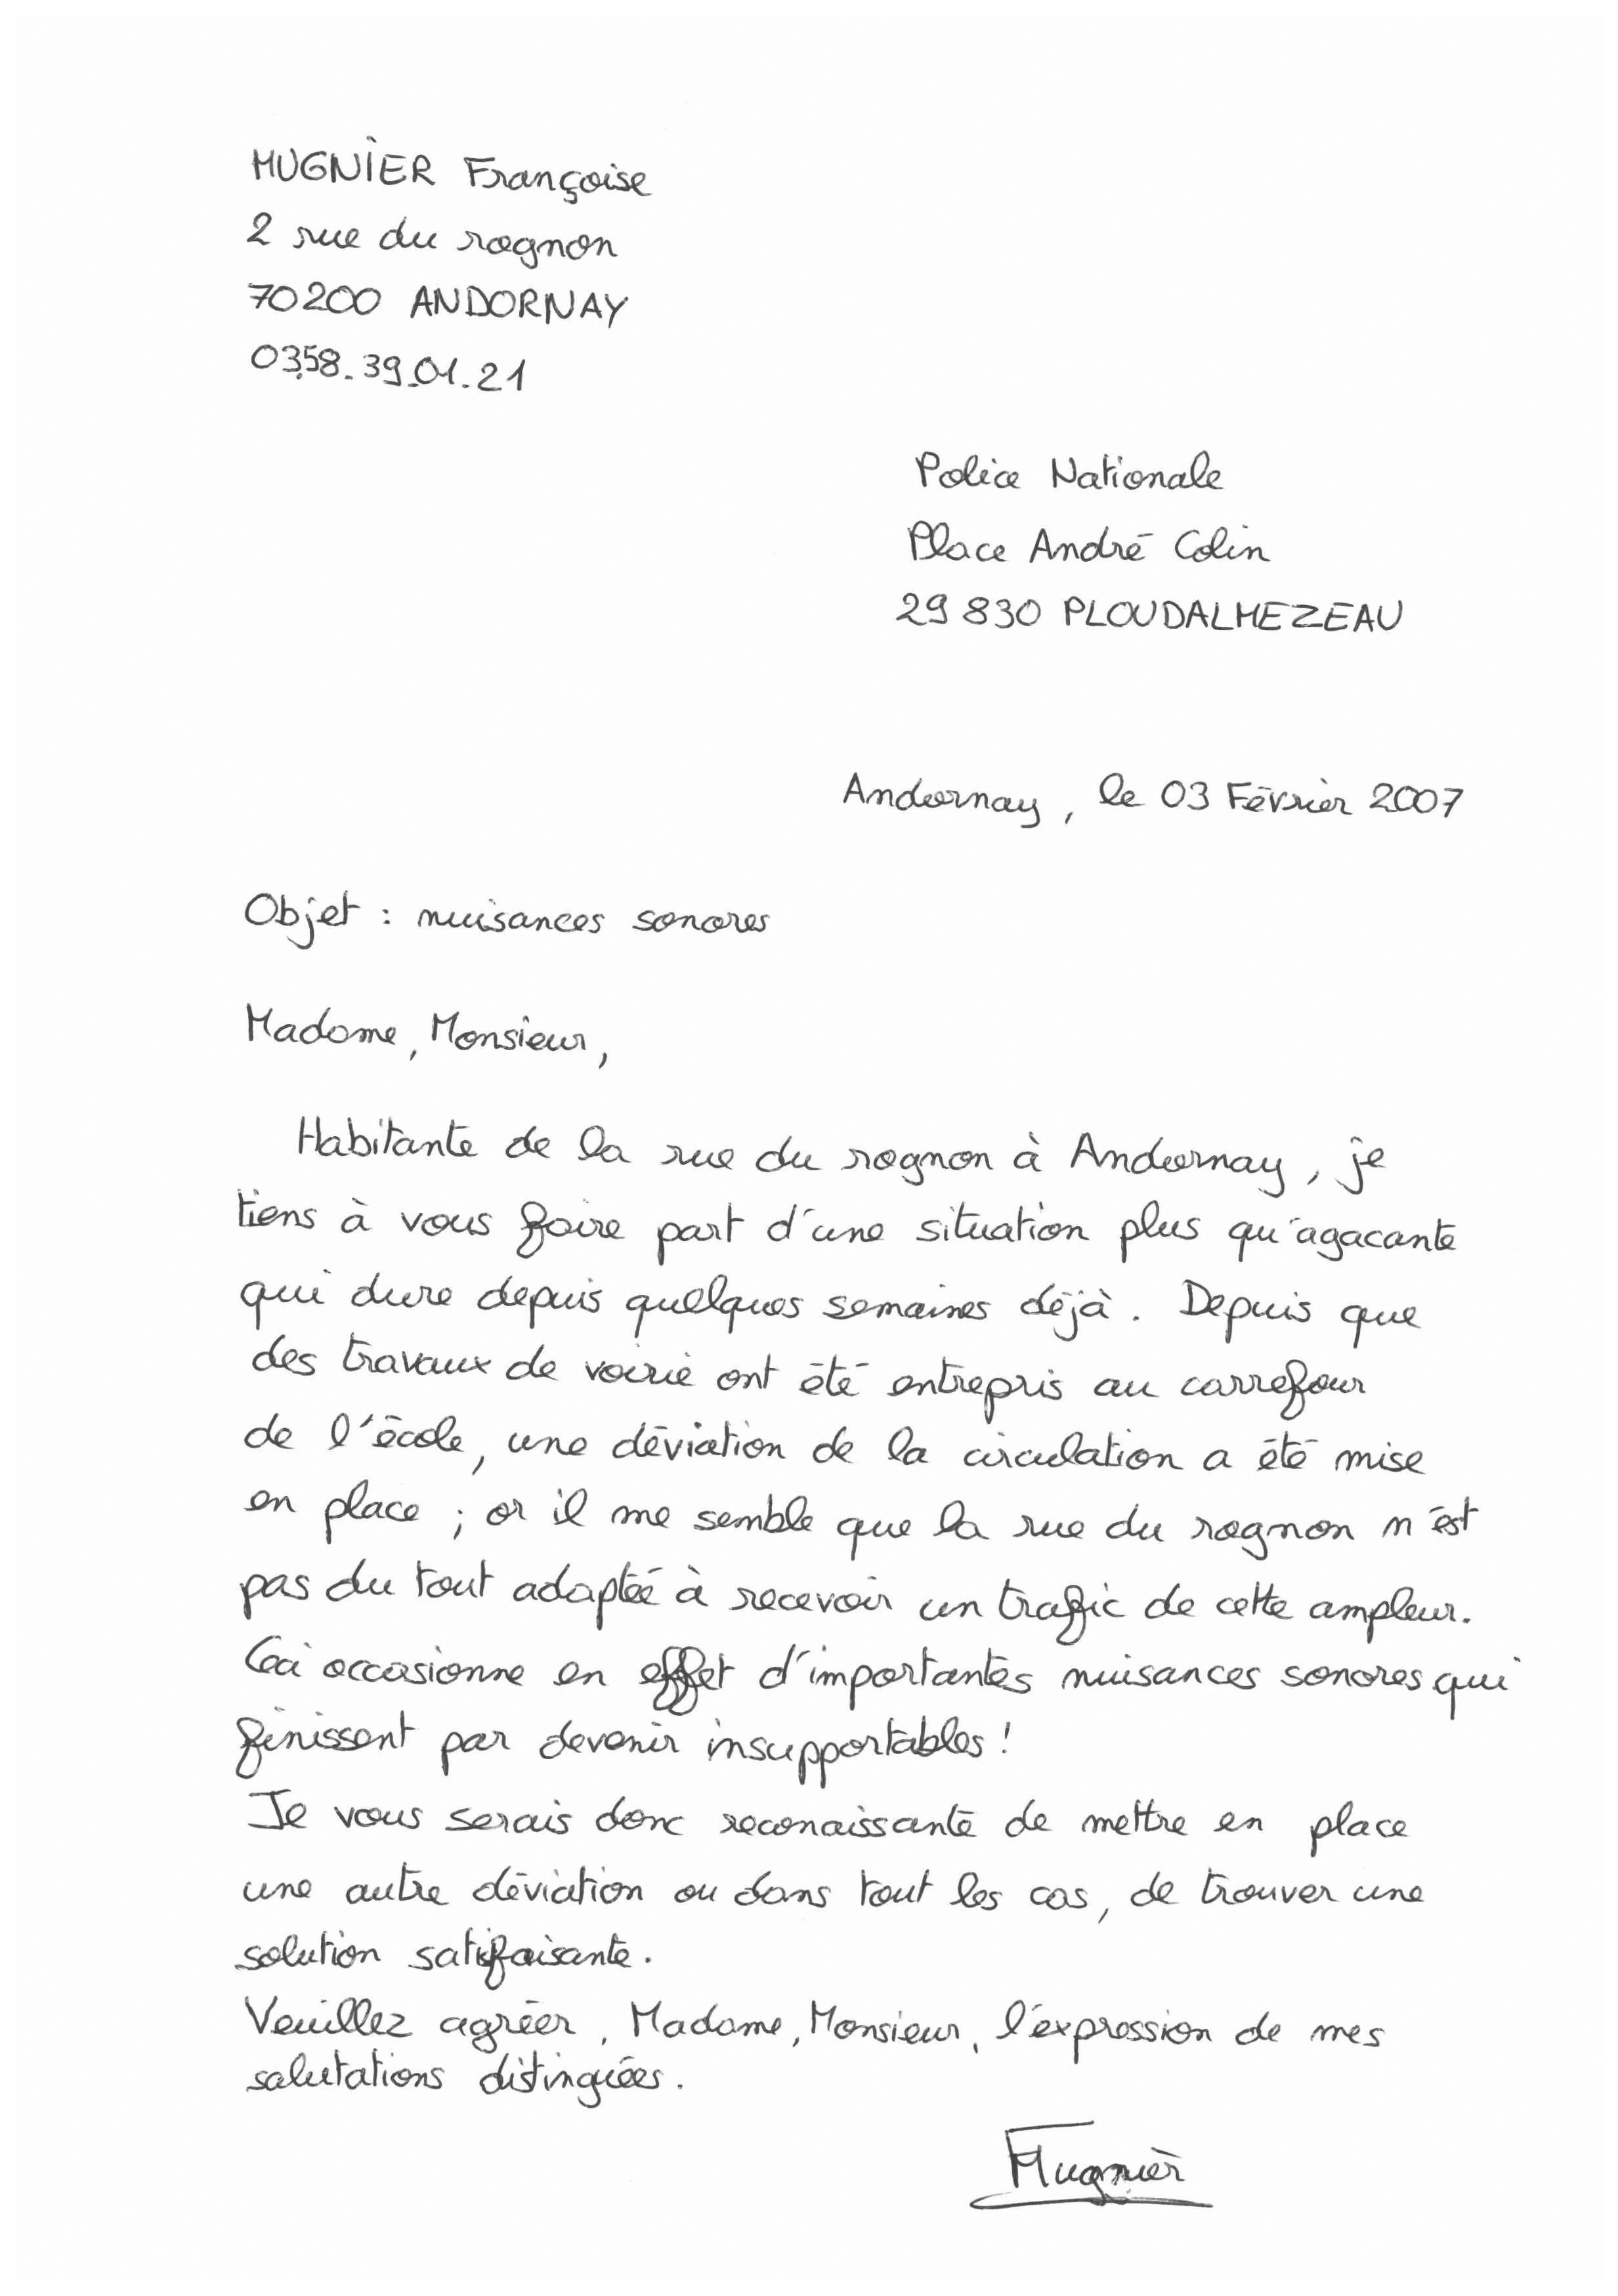 MUGNIER Françoise
2 rue du rognon
70200 ANDORNAY
03.58.39.01.21
Police Nationale
Place André Colin
29 830 PLOUDALMEZEAU
Andornay, le 03 Février 2007
Objet : nuisances sonores
Madame, Monsieur,
Habitante de la rue du rognon à Andornay, je
tiens à vous faire part d'une situation plus qu'agacante
qui dure depuis quelques semaines déjà. Depuis que
des travaux de voirie ont été entrepris au carrefour
de l'école, une déviation de la circulation a été mise
en place ; or il me semble que la rue du rognon n'est
pas du tout adaptée à recevoir un trafic de cette ampleur.
Ceci occasionne en effet d'importantes nuisances sonores qui
finissent par devenir insupportables !
Je vous serais donc reconaissante de mettre en place
une autre déviation ou dans tout les cas, de trouver une
solution satisfaisante.
Veuillez agréer, Madame, Monsieur, l'expression de mes
salutations distinguées.
FMugnier